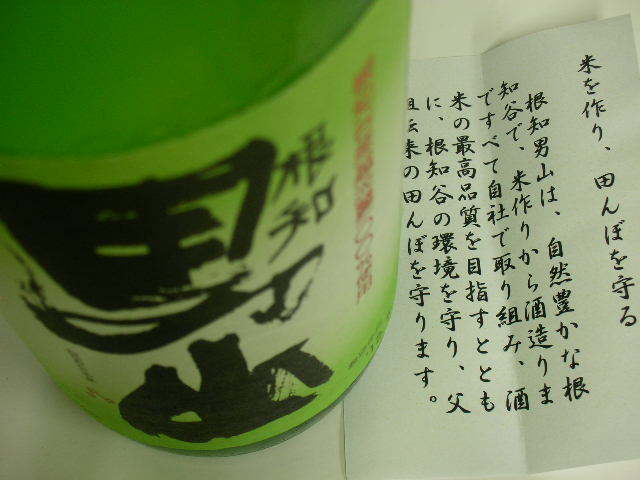 米を作り、田んぼを守る
根知男山は、自然豊かな根
知谷で、米作りから酒造りま
ですべて自社で取り組み、酒
米の最高品質を目指すととも
に、根知谷の環境を守り、父
祖伝来の田んぼを守ります。
根知
男山